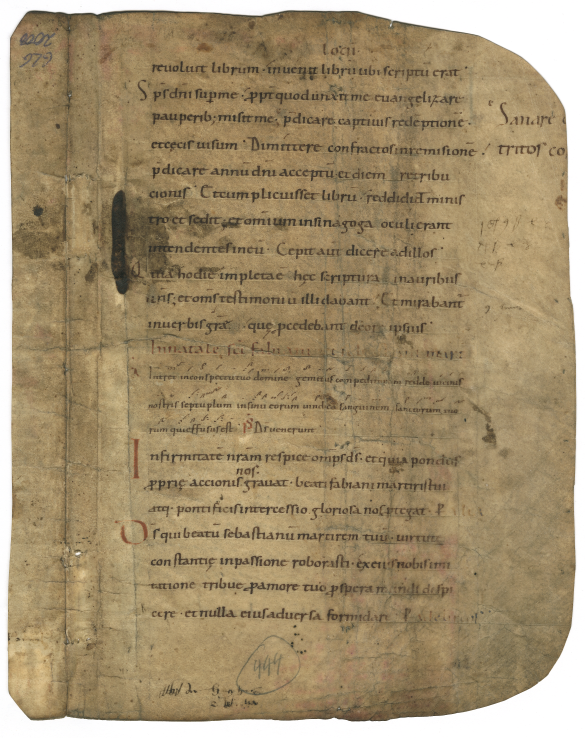 locū
revoluit librum · invenit librū ubi scriptū erat
Sps dni sup me · ppt quod unxit me euangelizare
pauperib; misit me · p̄dicare captivis redēptionē ·
et cęcis visum · Dimittere confractos in remisionē ·
Sanare
tritos co
p̄dicare annū dni acceptū et diem retribu
cionis · Et cum plicuisset librū · reddidit minis
tro et sedit · et omiūm in sinagoga oculi erant
intendentes in eū · Cepit aut dicere ad illos
quia hodie impleta ę hęc scriptura in auribus
uris; et om̄s testimoniū illi dabant · Et mirabant
in verbis gra · que pcedebant de ore ipsius
In natale sci fabi
Intret in conspectu tuo domine gemitus compeditorum redde vicinis
nostris septuplum in sinu eorum vindica sanguinem sanctorum tuo
rum qui effusus est · Ps Ds venerunt
Infirmitate nram respice omps ds · et quia pondus
nos ·
pprię accionis gravat · beati fabiani martiris tui
atq; pontificis intercessio gloriosa nos ptegat · P
Ds qui beatū sebastianū martirem tuū · virtute
constantię in passione roborasti · ex eius nobis imi
tatione tribue · p amore tuo pspera mundi dispi
cere · et nulla eius adversa formidare · P
999